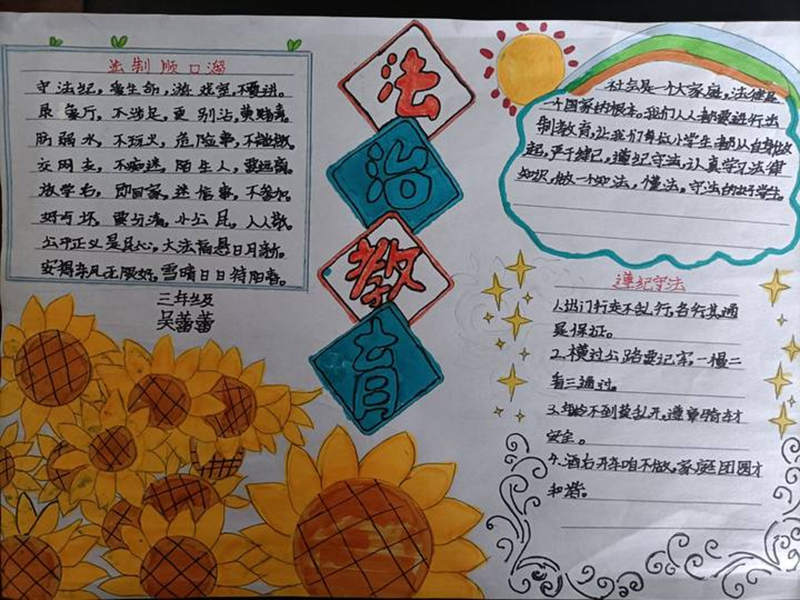 法制顺口溜
守法纪，害生命，游戏室，不要进。
不涉足，更别沾，黄赌毒。
不玩火，危险事，不能做。
交网友，不痴迷，陌生人，要远离。
放学后，即回家，迷信事，不参加。
好与坏，要分清，小公民，人人敬。
公平正义是民心，大法高悬日月新。
三年级
吴蕾蕾
法治教育
社会是一个大家庭，法律是
一个国家的根本。我们人人都要进行法
制教育，让我们每位小学生都从自身做
起，严于律己，遵纪守法，认真学习法律
知识，做一个知法，懂法，守法的好学生。
遵纪守法
1.出门行走不乱行，各行其通
是保证。
2.横过公路要记牢，一慢二
看三通过。
3.年龄不到莫乱开，遵章骑车才
安全。
4.酒后开车咱不做，家庭团圆才
和谐。